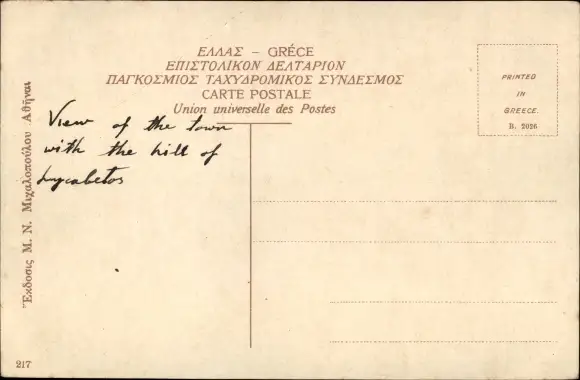 ΕΛΛΑΣ – GRÉCE
ΕΠΙΣΤΟΛΙΚΟΝ ΔΕΛΤΑΡΙΟΝ
ΠΑΓΚΟΣΜΙΟΣ ΤΑΧΥΔΡΟΜΙΚΟΣ ΣΥΝΔΕΣΜΟΣ
CARTE POSTALE
Union universelle des Postes
PRINTED
IN
GREECE.
B. 2026
View of the town
with the hill of
Lycabetos
Ἔκδοσις Μ. Ν. Μιχαλοπούλου Ἀθῆναι
217